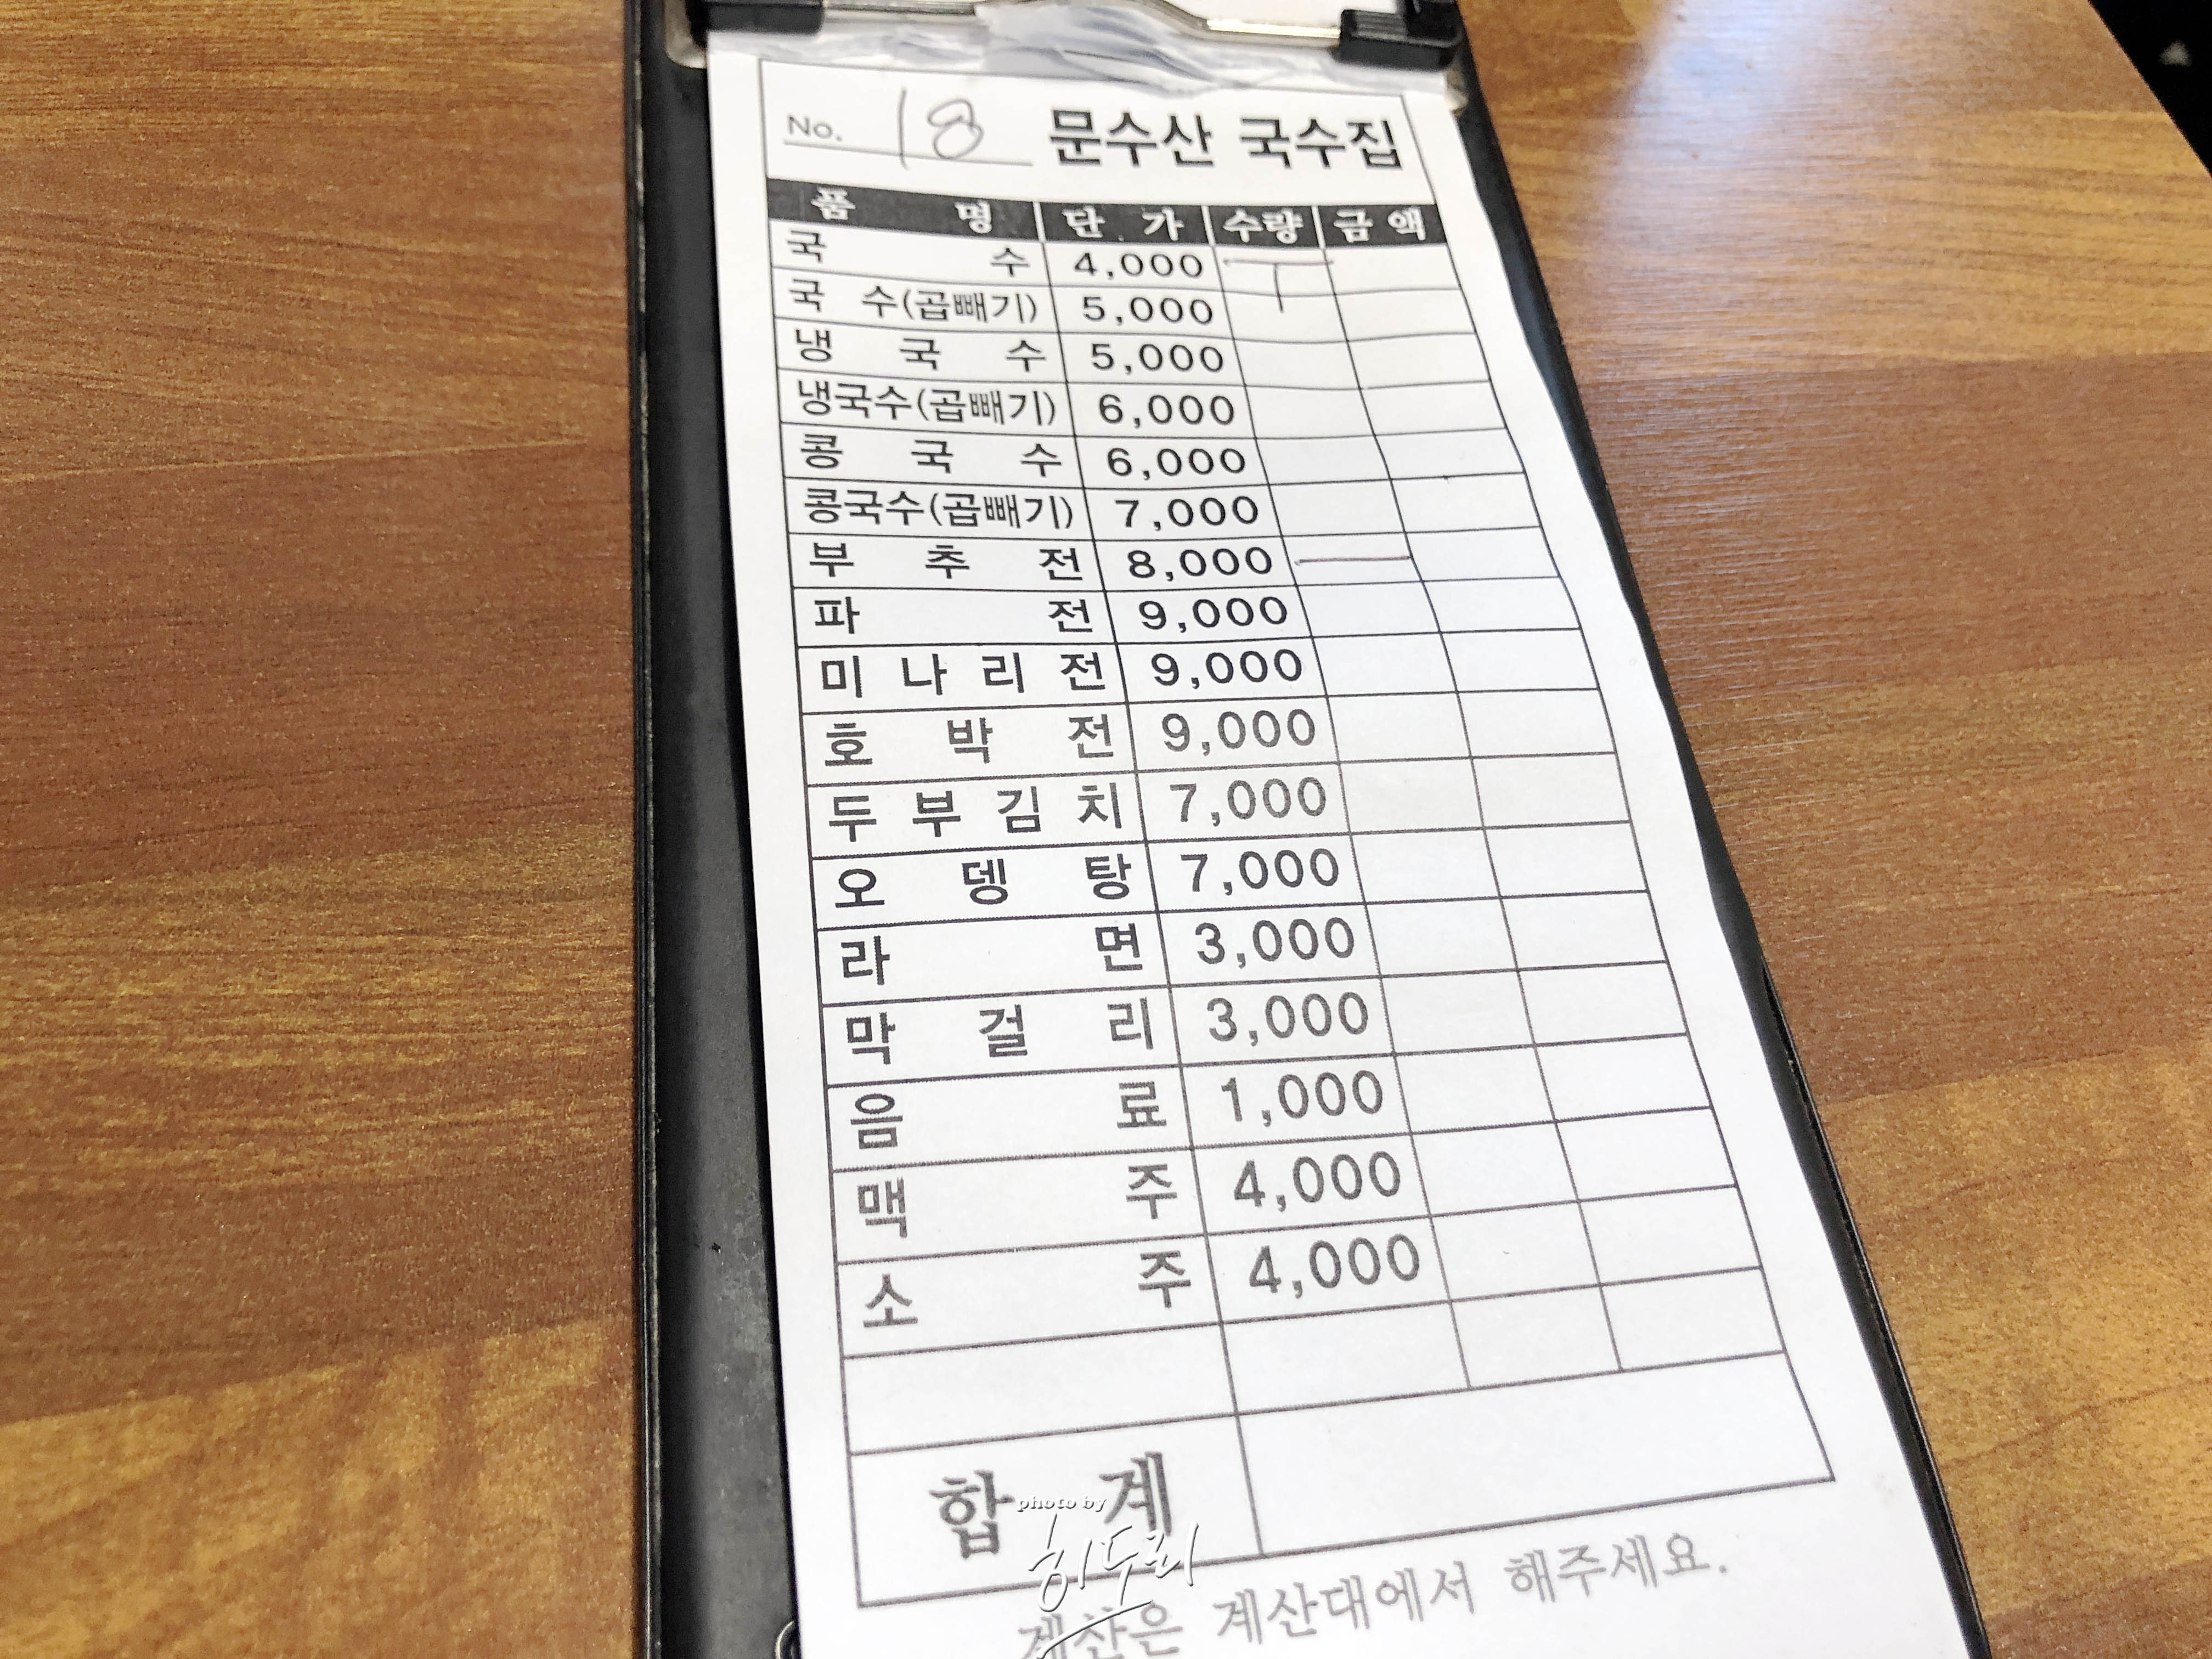 No. 18 문수산 국수집
품 명 단 가 수량 금 액
국 수 4,000
국 수(곱빼기) 5,000
냉 국 수 5,000
냉국수(곱빼기) 6,000
콩 국 수 6,000
콩국수(곱빼기) 7,000
부 추 전 8,000
파 전 9,000
미 나 리 전 9,000
호 박 전 9,000
두 부 김 치 7,000
오 뎅 탕 7,000
라 면 3,000
막 걸 리 3,000
음 료 1,000
맥 주 4,000
소 주 4,000
합 계
photo by
히두리
계산은 계산대에서 해주세요.